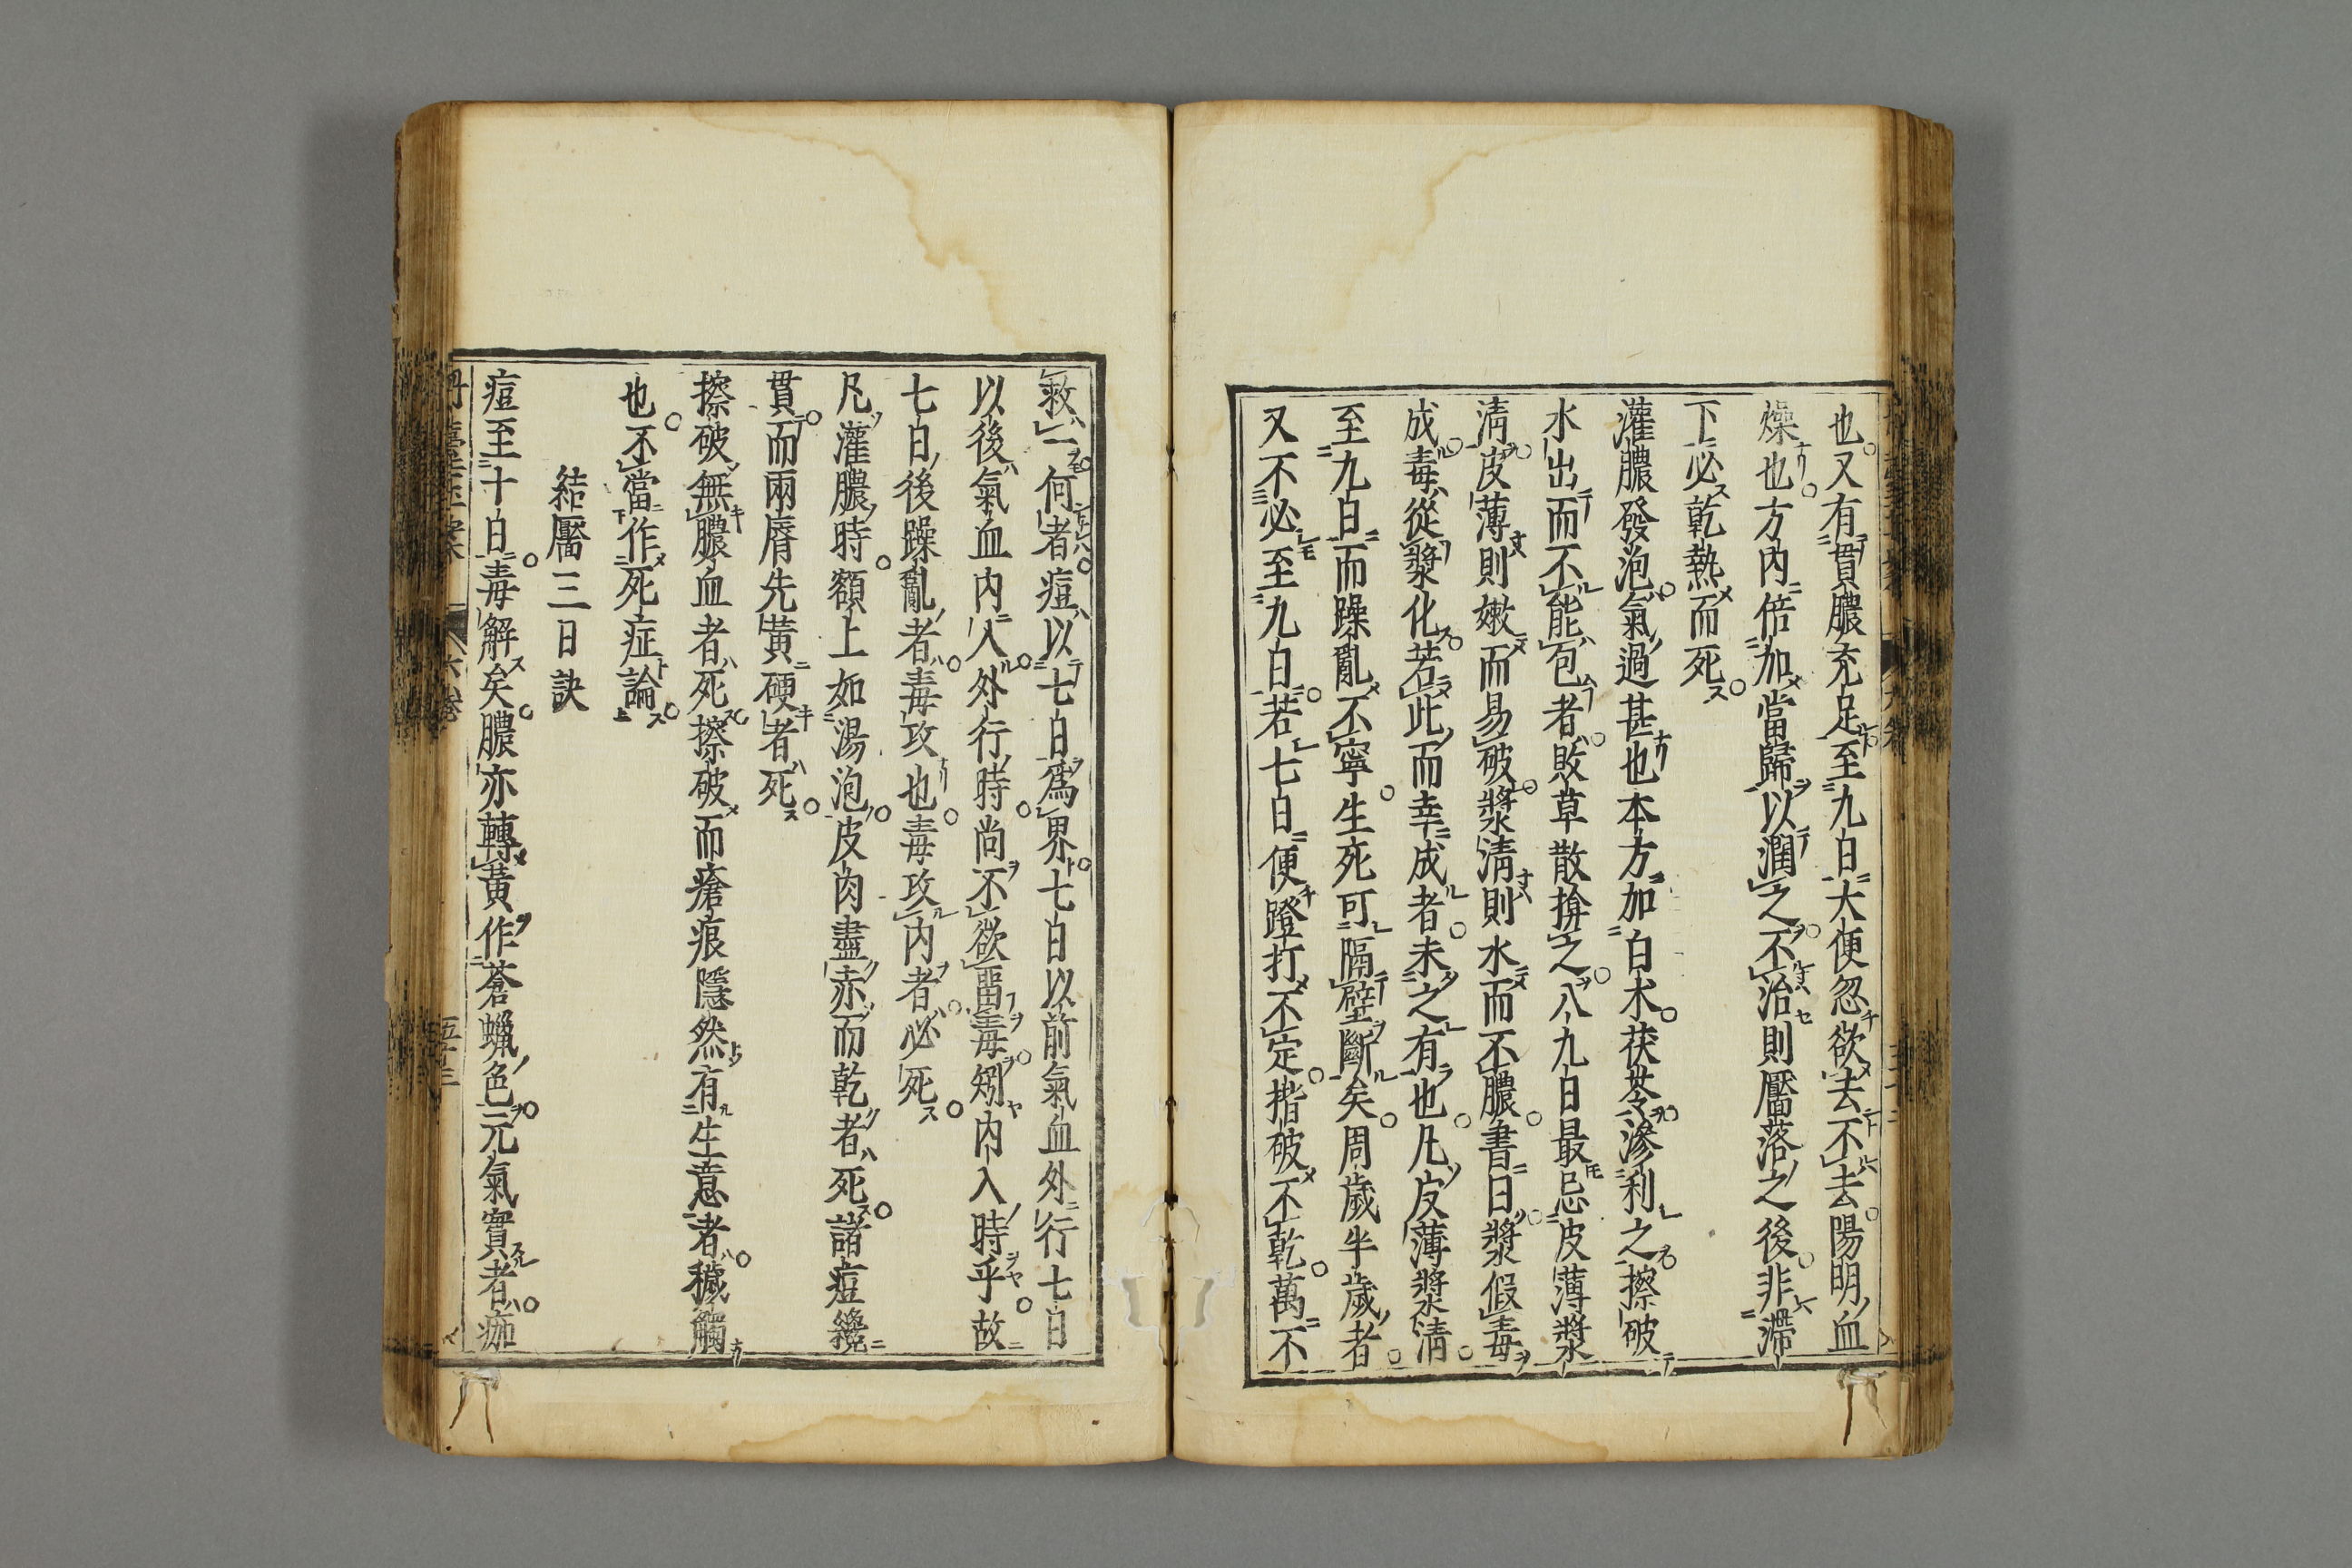 也又有貫膿充足至九日大便忽欲去不去陽明血
燥也方内倍加當歸以潤之不治則靨落之後非滯
下必乾熱而死
灌膿發泡氣過甚也本方加白朮茯苓滲利之擦破
水出而不能包者敗草散揜之八九日最忌皮薄漿
淸皮薄則嫩而易破漿淸則水而不膿書曰漿假毒
成毒從漿化若此而幸成者未之有也凡皮薄漿淸
至九日而躁亂不寧生死可隔壁斷矣周歲半歲者
又不必至九日若七日便蹬打不定揩破不乾萬不
救一何者痘以七日爲界七日以前氣血外行七日
以後氣血内入外行時尚不欲畱毒矧内入時乎故
七日後躁亂者毒攻也毒攻内者必死
凡灌膿時額上如湯泡皮肉盡赤而乾者死諸痘纔
貫而兩脣先黃硬者死
擦破無膿血者死擦破而瘡痕隱然有生意者穢觸
也不當作死症論
結靨三日訣
痘至十日毒解矣膿亦轉黃作蒼蠟色元氣實者痂
六卷
五十三